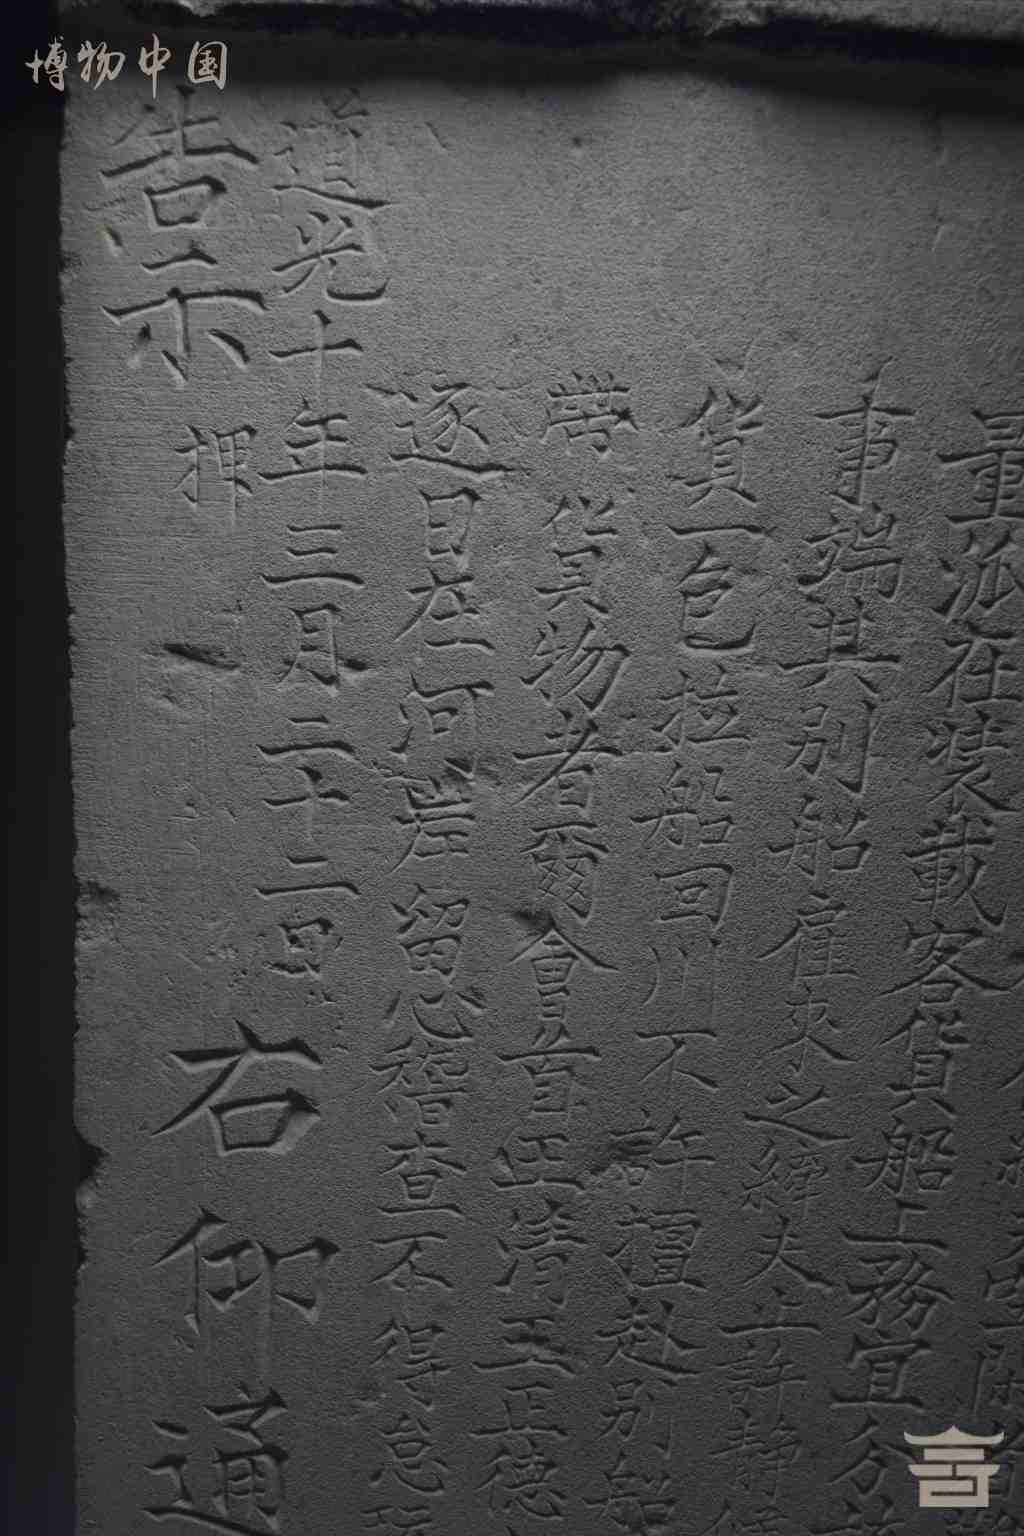 博物中国
量派在裝載客貨船上務宜分
事端其別船雇來之縴夫止許靜
貨一包拉船回川不許擅赴別船
帶貨物者爾會首正清王正德
逐日在河岸留心稽查不得怠玩
道光十年三月二十二日
右仰通
告示
押